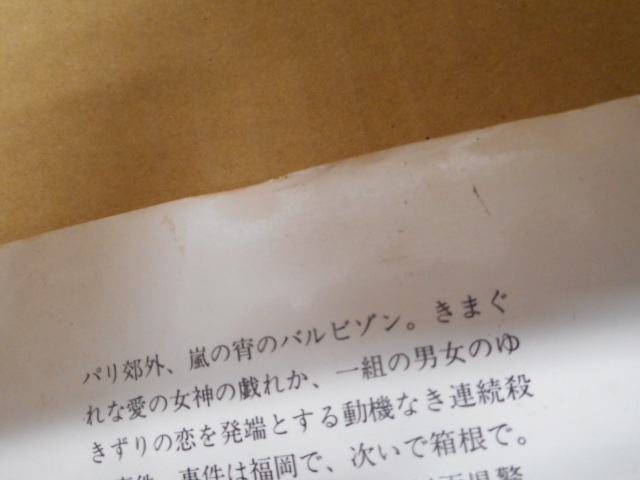 パリ郊外、嵐の宵のバルビゾン。きまぐ
れな愛の女神の戯れか、一組の男女のゆ
きずりの恋を発端とする動機なき連続殺
事件。事件は福岡で、次いで箱根で。
県警